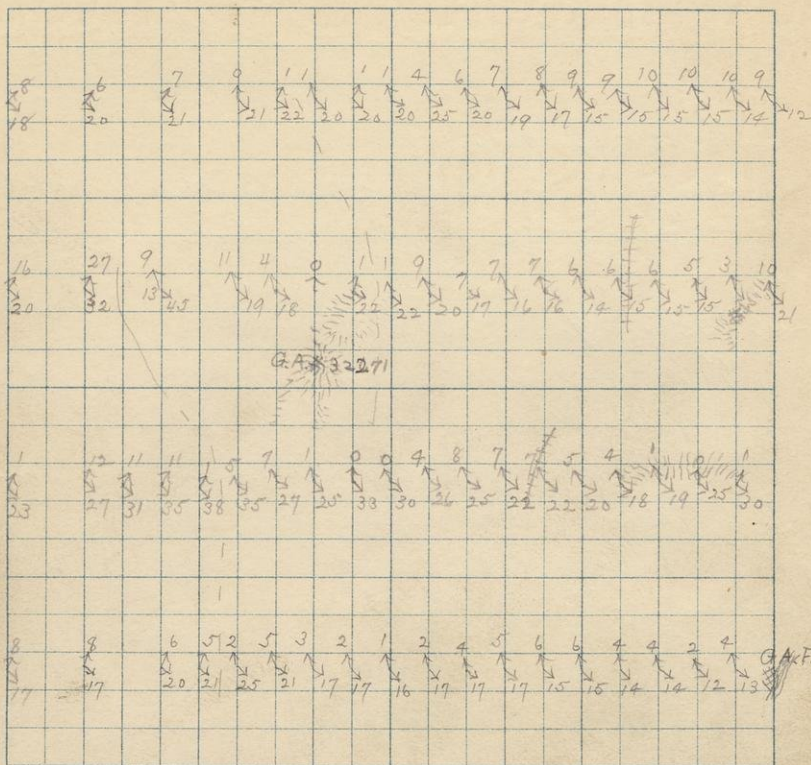 8 6 7 0 1 1 1 1 4 6 7 8 9 9 10 10 10 9
18 20 21 21 22 20 20 20 25 20 19 17 15 15 15 15 14 12
16 27 9 11 4 0 1 1 9 7 7 7 6 6 6 5 3 10
20 32 13 45 19 18 22 22 20 17 16 16 14 15 15 15 21
G.A.
1 12 11 11 1 5 7 1 0 0 4 8 7 7 5 4 1 0 1
23 27 31 35 38 35 27 25 33 30 26 25 22 22 20 18 19 25 30
8 8 6 5 2 5 3 2 1 2 4 5 6 6 4 4 2 4
17 17 20 21 25 21 17 17 16 17 17 17 15 15 14 14 12 13